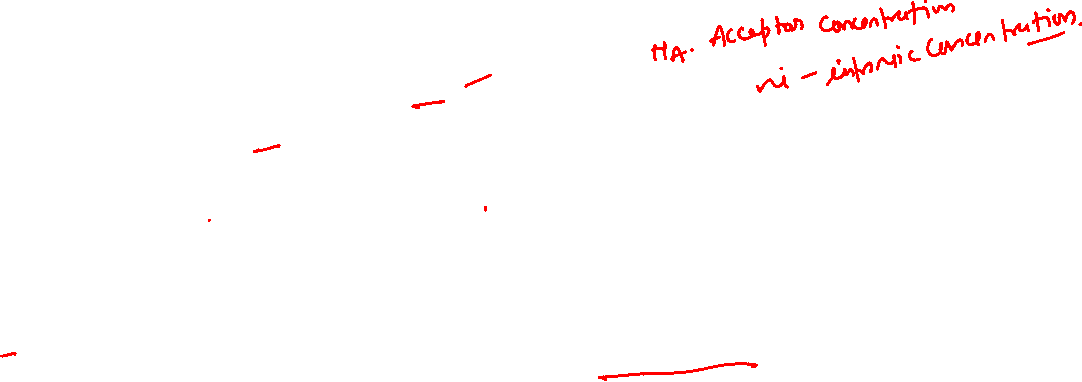 HA. Acceptor concentration
ni - intrinsic concentration.